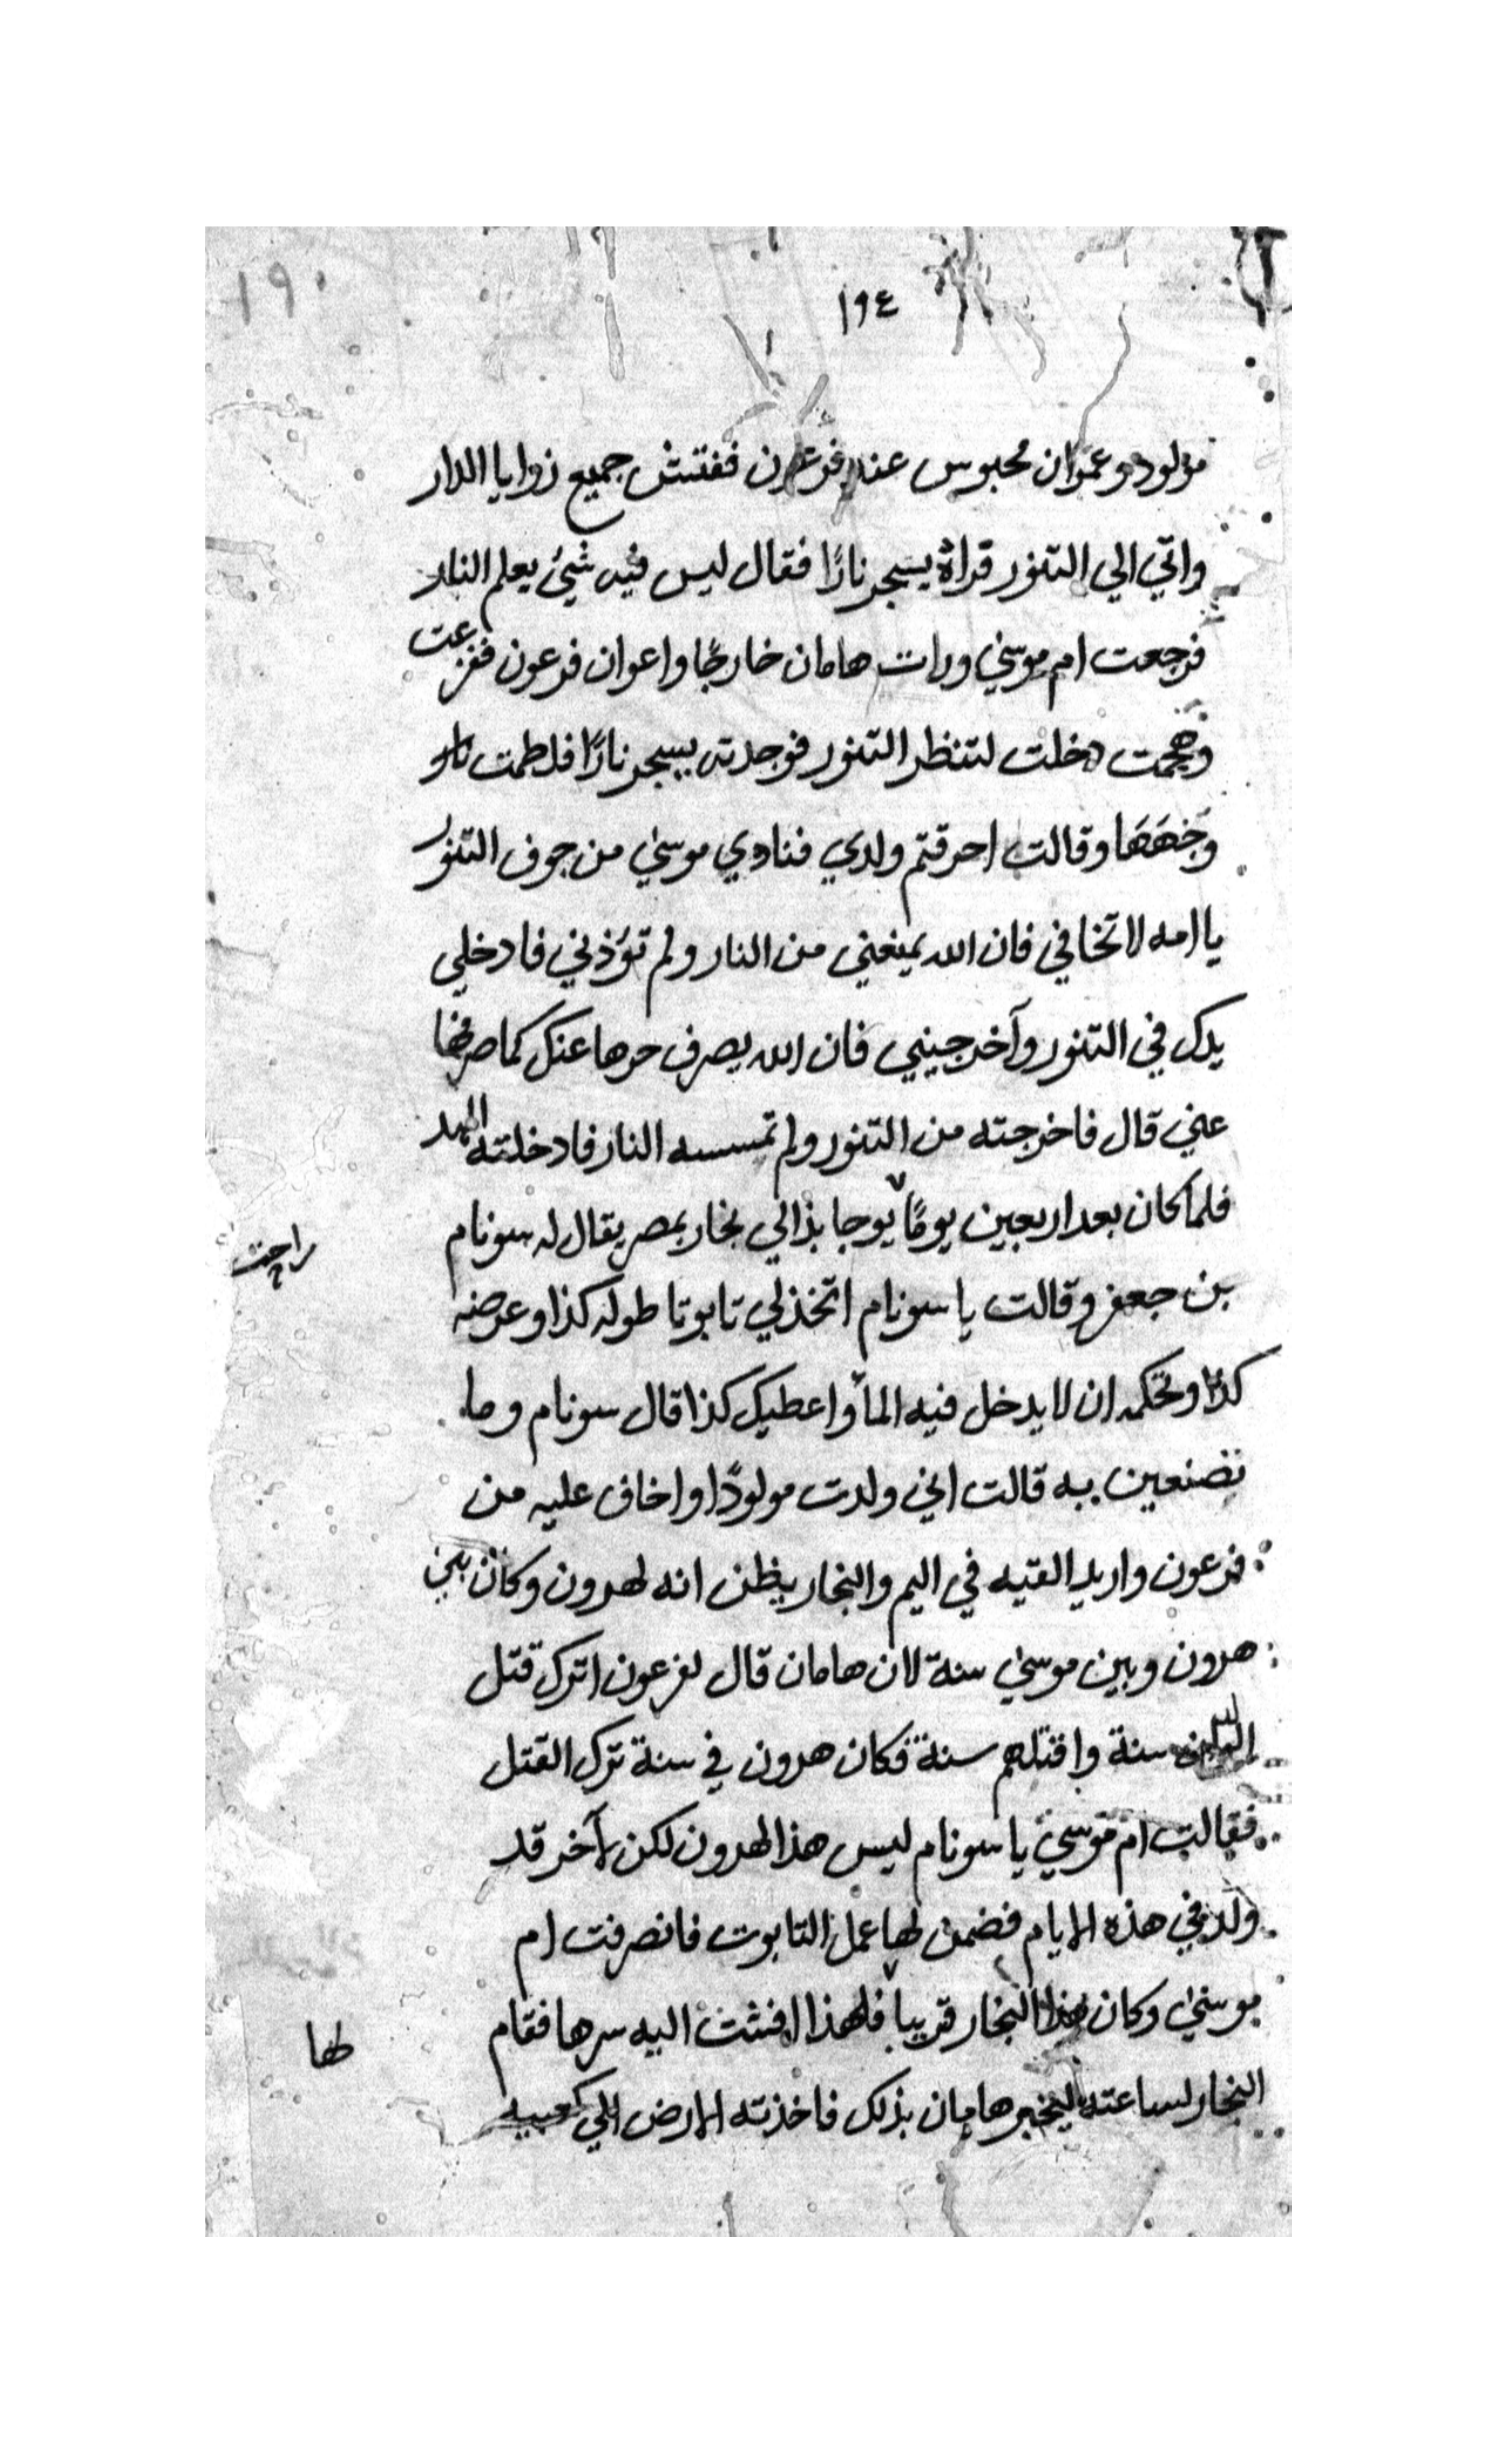 ١٩٠
١٩٤
مولود وعمران محبوس عند فرعون ففتش جميع زوايا الدار
واتي الي التنور قراة يسجر نارًا فقال ليس فيه شيئ يعلم النار
فرجعت ام موسيٰ ورات هامان خارجًا واعوان فرعون ففزعت
وهجمت دخلت لتنظر التنور فوجدته يسجر نارًا فلطمت
وجهها وقالت احرقتم ولدي فنادي موسيٰ من جوف التنور
يا امه لا تخافي فان الله يمنعني من النار ولم تؤذني فادخلي
يدك في التنور وآخرجيني فان الله يصرف حرها عنك كما صرفها
عني قال فاخرجته من التنور ولم تمسسه النار فادخلته المهد
فلما كان بعد اربعين يومًا يوجا بذالي نجار بمصر يقال له سونام
راحت
بن جعفر وقالت يا سونام اتخذلي تابوتا طوله كذا وعرضه
كذا وتحكمه ان لا يدخل فيه المأ واعطيك كذا قال سونام وما
تصنعين به قالت اني ولدت مولودًا واخاف عليه من
فرعون واريد القيه في اليم والنجار يظن انه لهرون وكان بين
هرون وبين موسيٰ سنة لان هامان قال لفرعون اترك قتل
سنة واقتلهم سنة فكان هرون في سنة ترك القتل
فقالت ام موسيٰ يا سونام ليس هذا لهرون لكن لآخر قد
ولد في هذه الايام فضمن لها عمل التابوت فانصرفت ام
موسيٰ وكان هذا النجار قريبا فلهذا افشت اليه سرها فقام
لها
النجار لساعته ليخبر هامان بذلك فاخذته الارض الي كعبيه